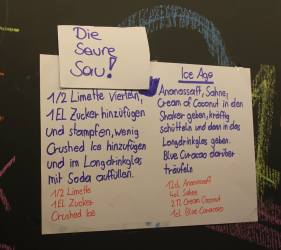 Die
Saure
Sau!
1/2 Limette Vierteln,
1EL Zucker hinzufügen
und stampfen, wenig
Crushed Ice hinzufügen
und im Longdrinkglas
mit Soda auffüllen.
1/2 Limette
1EL Zucker
Crushed Ice
Ice Age
Ananassaft, Sahne,
Cream of Coconut in den
Shaker geben, kräftig
schütteln und dann in das
Longdrinkglas geben.
Blue Curacao darüber
träufeln
12cl Ananassaft
4cl Sahne
2 Cream Coconut
1cl Blue Curacao